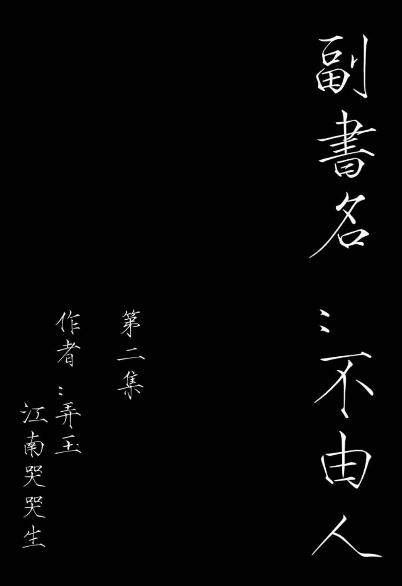 副書名：不由人
第二集
作者：弄玉
江南哭哭生